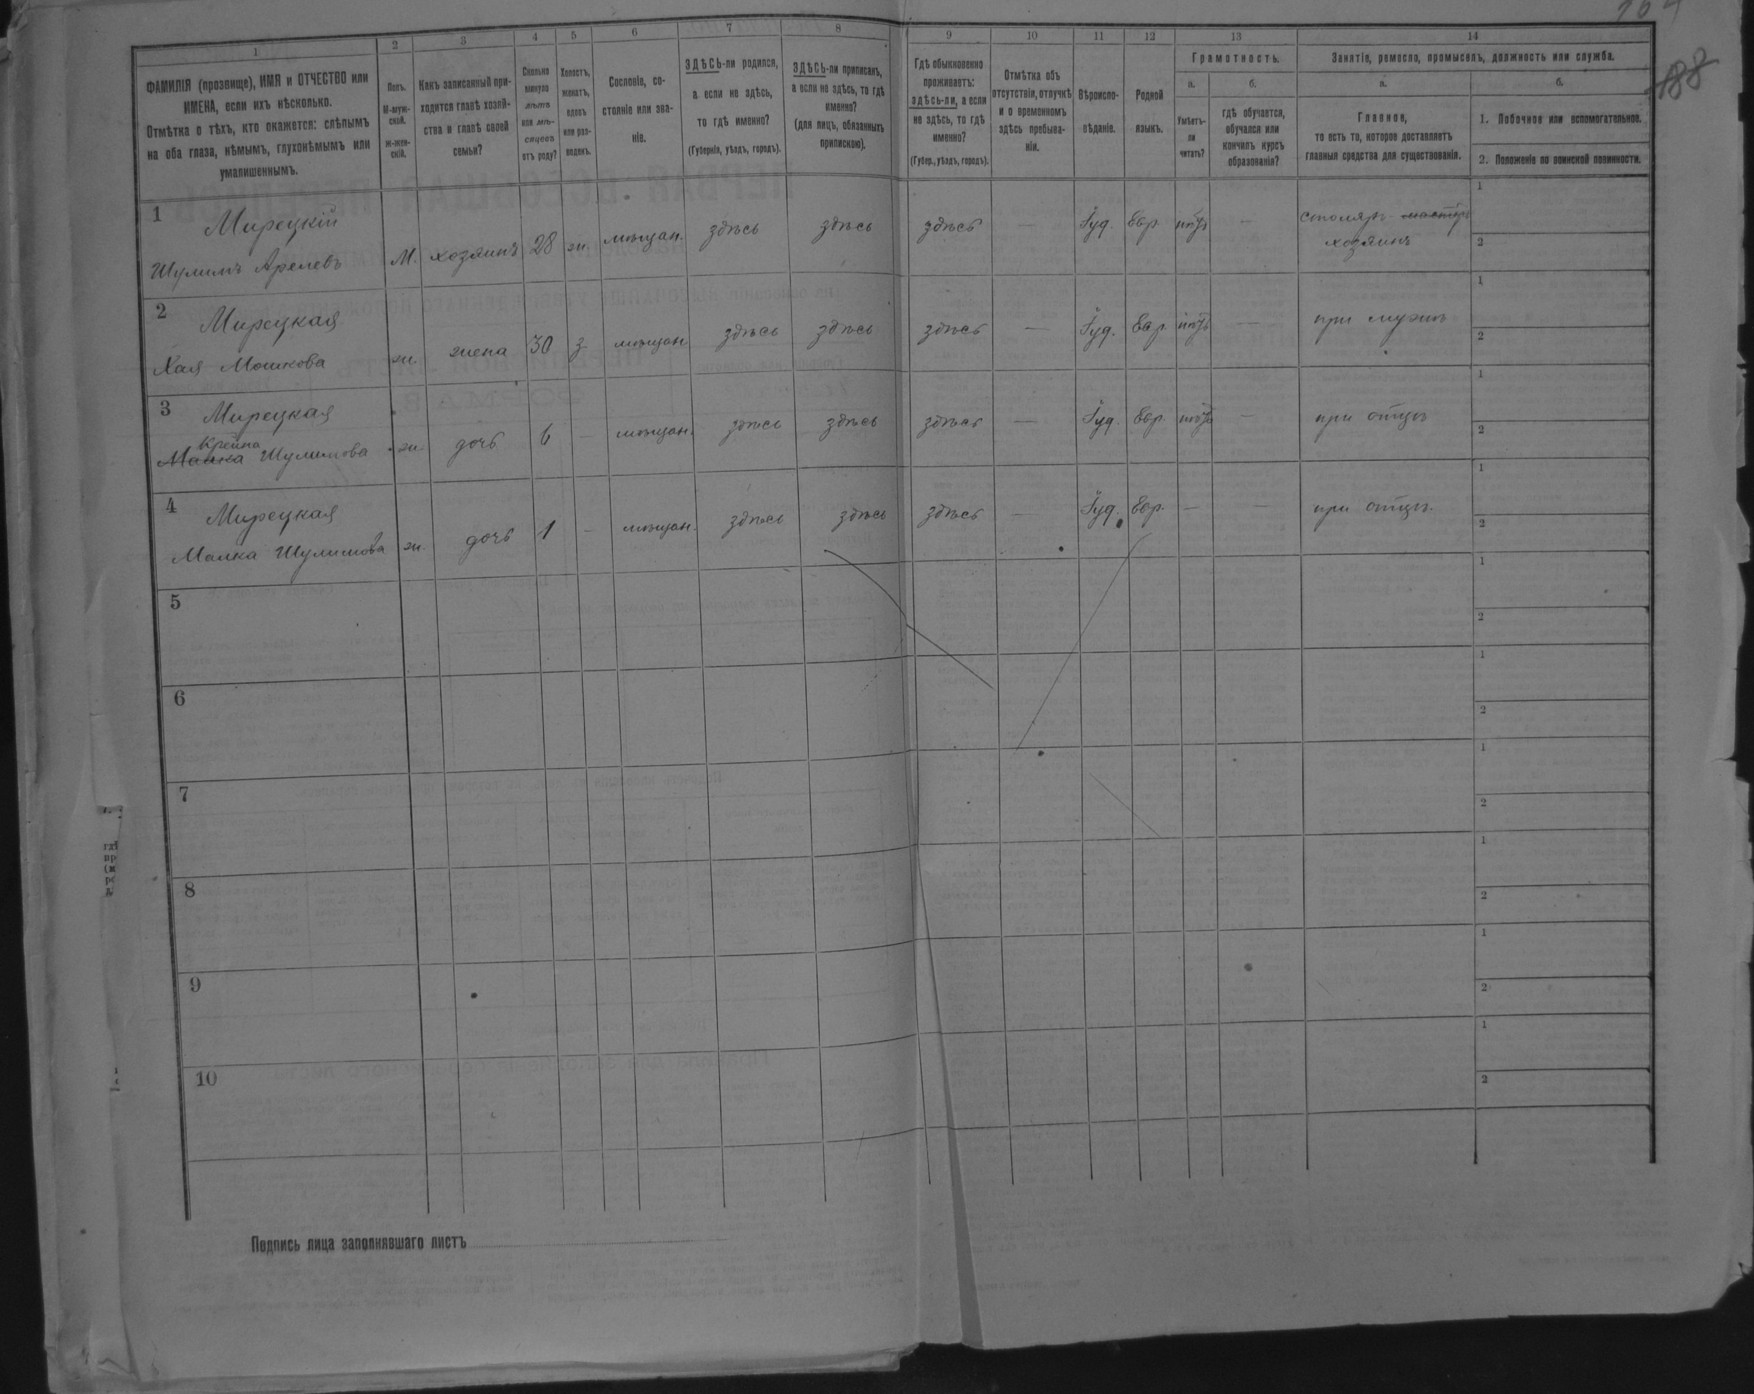 188
1 2 3 4 5 6 7 8 9 10 11 12 13 14
ФАМИЛІЯ (прозвище), ИМЯ и ОТЧЕСТВО или
ИМЕНА, если ихъ нѣсколько.
Отмѣтка о тѣхъ, кто окажется: слѣпымъ
на оба глаза, нѣмымъ, глухонѣмымъ или
умалишеннымъ.
Полъ.
М-муж-
ской.
Ж-жен-
скій.
Какъ записанный при-
ходится главѣ хозяй-
ства и главѣ своей
семьи?
Сколько
минуло
лѣтъ
или мѣ-
сяцевъ
отъ роду?
Холостъ,
женатъ,
вдовъ
или раз-
веденъ.
Сословіе, со-
стояніе или зва-
ніе.
ЗДѢСЬ-ли родился,
а если не здѣсь,
то гдѣ именно?
(Губернія, уѣздъ, городъ).
ЗДѢСЬ-ли приписанъ,
а если не здѣсь, то гдѣ
именно?
(для лицъ, обязанныхъ
припискою).
Гдѣ обыкновенно
проживаетъ:
здѣсь-ли, а если
не здѣсь, то гдѣ
именно?
(Губер., уѣздъ, городъ).
Отмѣтка объ
отсутствіи, отлучкѣ
и о временномъ
здѣсь пребыва-
ніи.
Вѣроиспо-
вѣданіе.
Родной
языкъ.
Грамотность.
а.
Умѣетъ-
ли
читать?
б.
гдѣ обучается,
обучался или
кончилъ курсъ
образованія?
Занятіе, ремесло, промыселъ, должность или служба.
а.
Главное,
то есть то, которое доставляетъ
главныя средства для существованія.
б.
1. Побочное или вспомогательное.
2. Положеніе по воинской повинности.
1 Мирецкій
Шулимъ Арелевъ М. хозяинъ 28 ж. мѣщан. здѣсь здѣсь здѣсь — Іуд. Евр. — столяръ мастеръ
хозяинъ
1
2
2 Мирецкая
Хая Мошкова ж. жена 30 з. мѣщан. здѣсь здѣсь здѣсь — Іуд. Евр. — при мужѣ
1
2
3 Мирецкая
Крейна
Малка Шулимова ж. дочь 6 — мѣщан. здѣсь здѣсь здѣсь — Іуд. Евр. — при отцѣ
1
2
4 Мирецкая
Малка Шулимова ж. дочь 1 — мѣщан. здѣсь здѣсь здѣсь — Іуд. Евр. — — при отцѣ.
1
2
5
1
2
6
1
2
7
1
2
8
1
2
9
1
2
10
1
2
Подпись лица заполнявшаго листъ